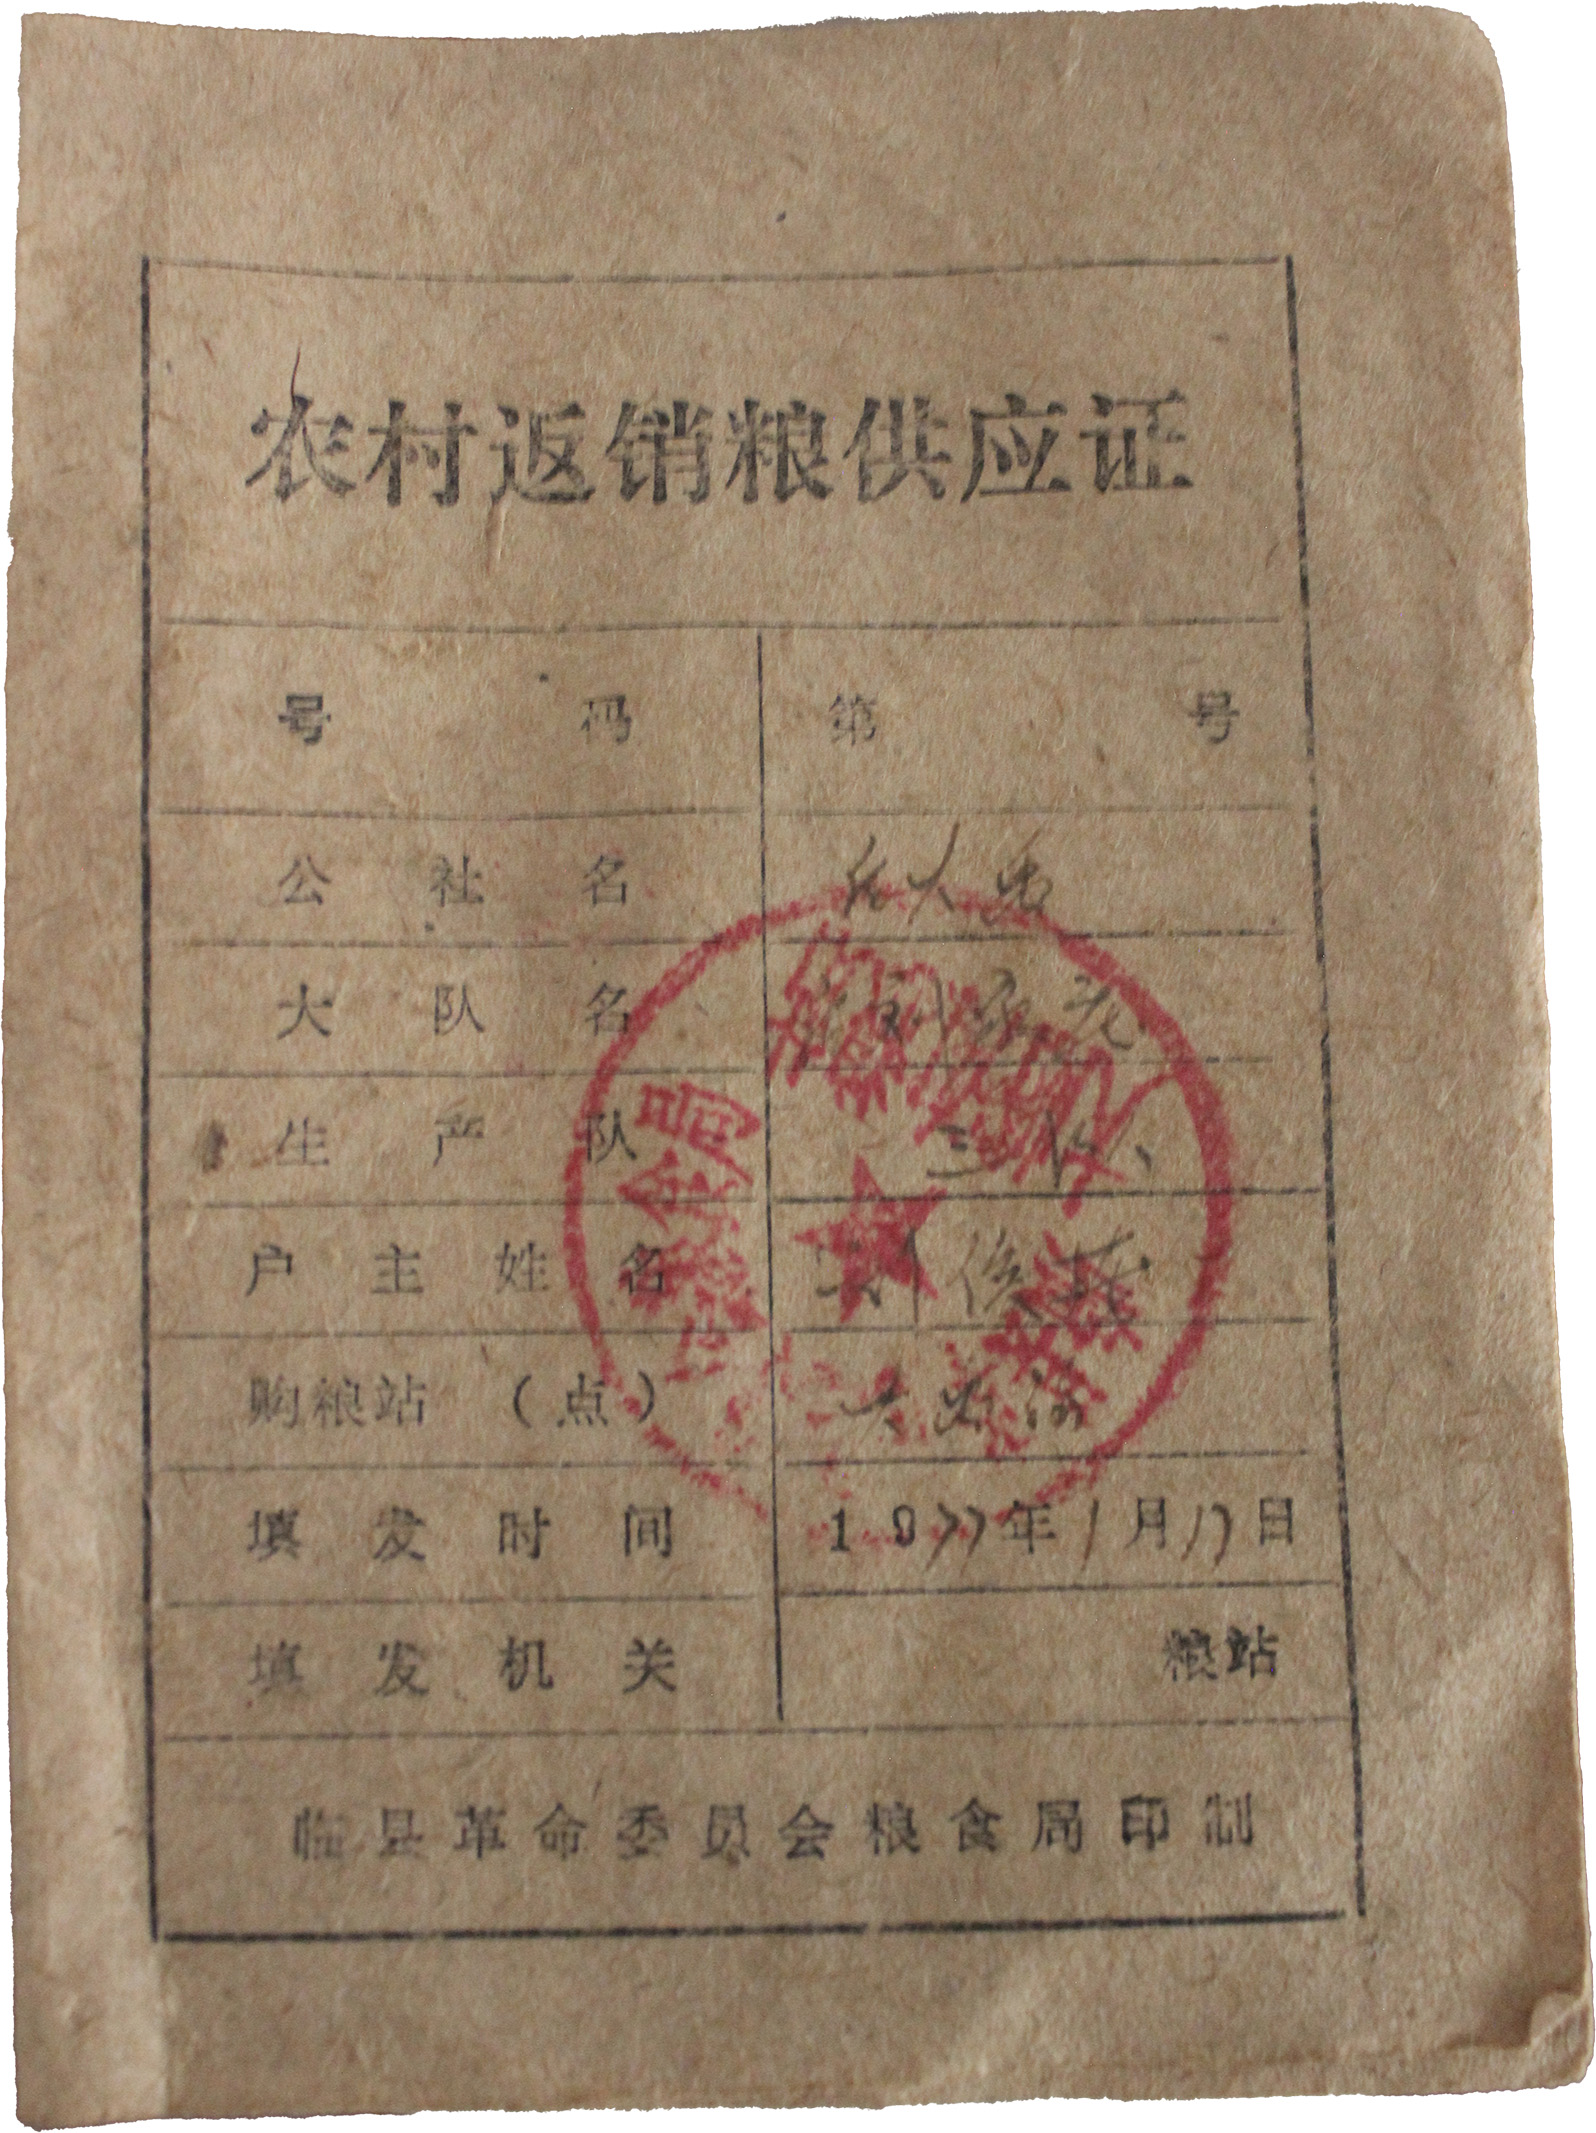 农村返销粮供应证
号码 第 号
公社名
大队名 刘家
生产队 三队
户主姓名 刘俊
购粮站（点）
填发时间 1977年1月17日
填发机关 粮站
临县革命委员会粮食局印制